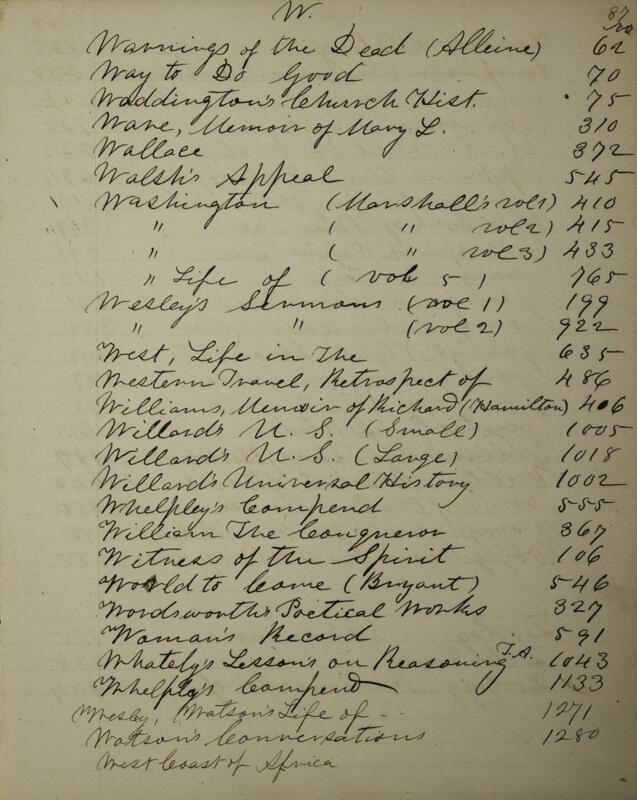 W. 87
No
Warnings of the Dead (Alleine) 62
Way to Do Good 70
Waddington's Church Hist. 75
Ware, Memoir of Mary L. 310
Wallace 372
Walsh's Appeal 545
Washington (Marshall's vol 1) 410
" ( " vol 2) 415
" ( " vol 3) 433
" Life of ( vol 5 ) 765
Wesley's Sermons (vol 1) 199
" " (vol 2) 922
West, Life in The 635
Western Travel, Retrospect of 486
Williams, Memoir of Richard (Hamilton) 406
Willard's U. S. (Small) 1005
Willard's U. S. (Large) 1018
Willard's Universal History 1002
Whelpley's Compend 555
William The Conqueror 367
Witness of the Spirit 106
World to Come (Bryant) 546
Wordsworth's Poetical Works 327
Woman's Record 591
Whately's Lessons on Reasoning T.A. 1043
Whelply's Compend 1133
Wesley, Watson's Life of - - 1271
Watson's Conversations 1280
West Coast of Africa